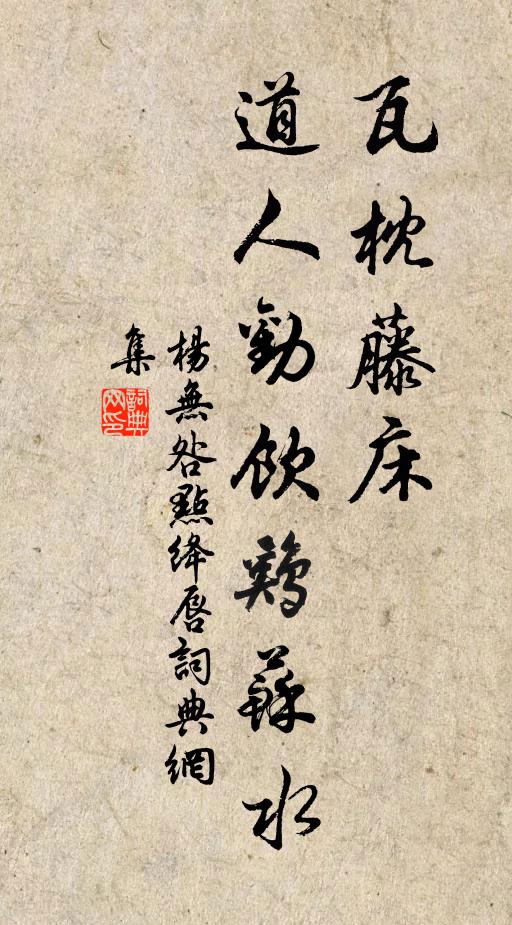 瓦枕藤床
道人勸飲鷄蘇水
楊無咎點絳唇詞典網
集
詞典網印